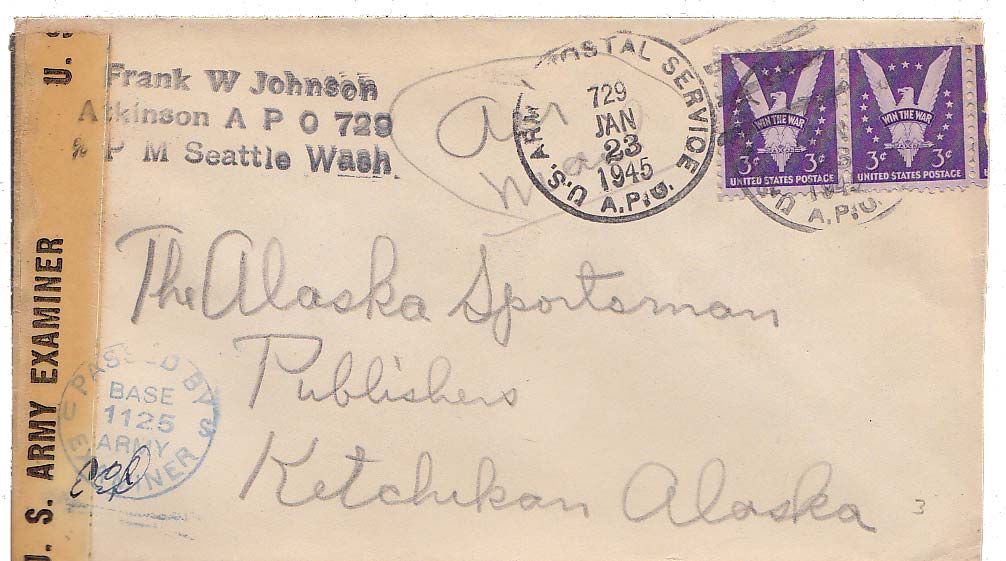 Frank W Johnson
Atkinson A P O 729
% P M Seattle Wash.
Air
Mail
U.S. ARMY POSTAL SERVICE
729
JAN
23
1945
A.P.O.
WIN THE WAR
3¢ 3¢
UNITED STATES POSTAGE
WIN THE WAR
3¢ 3¢
UNITED STATES POSTAGE
U.S.
1945
A.P.O.
The Alaska Sportsman
Publishers
Ketchikan Alaska
3
U. S.
U. S. ARMY EXAMINER
PASSED BY
BASE
1125
ARMY
EXAMINER
U S